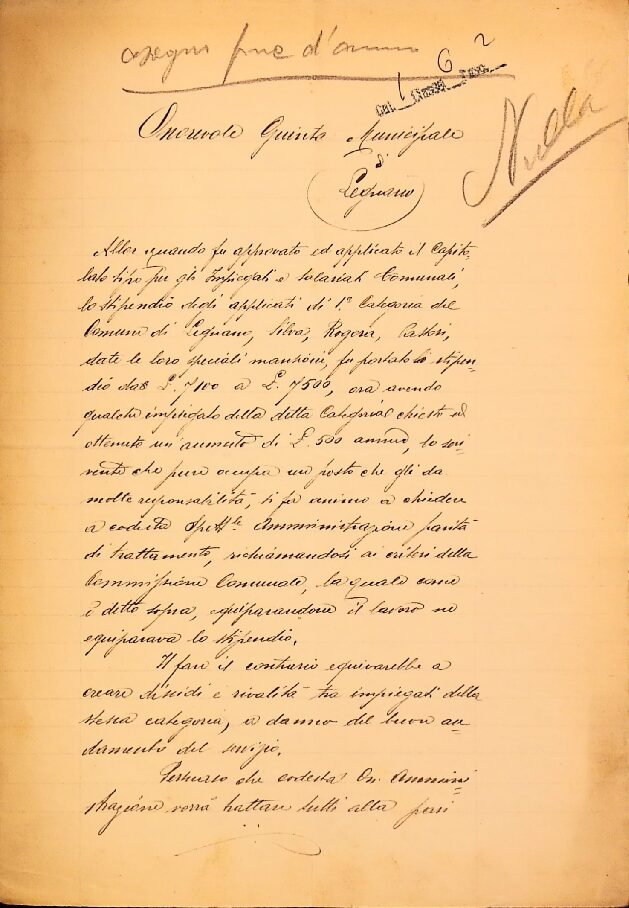 assegni fine d'anno
Cat. 1 Classe 6 Fasc. 2
Nulla
Onorevole Giunta Municipale
di
Legnano
Allor quando fu approvato ed applicato il Capito-
lato tipo per gli Impiegati e salariati Comunali,
lo stipendio degli applicati di 1ª Categoria del
Comune di Legnano, Silva, Rogora, Pastori,
date le loro speciali mansioni, fu portato lo stipen-
dio da £. 7100 a £. 7500, ora avendo
qualche impiegato della detta Categoria chiesto ed
ottenuto un aumento di £. 500 annue, lo scri-
vente che pure occupa un posto che gli da
molte responsabilità, si fa animo a chiedere
a codesta Spett.le Amministrazione parità
di trattamento, richiamandosi ai criteri della
Commissione Comunale, la quale come
è detto sopra, equiparandone il lavoro ne
equiparava lo stipendio.
Il fare il contrario equivarebbe a
creare dissidi e rivalità tra impiegati della
stessa categoria, a danno del buon an-
damento del servizio.
Persuaso che codesta On. Ammini-
strazione vorrà trattare tutti alla pari